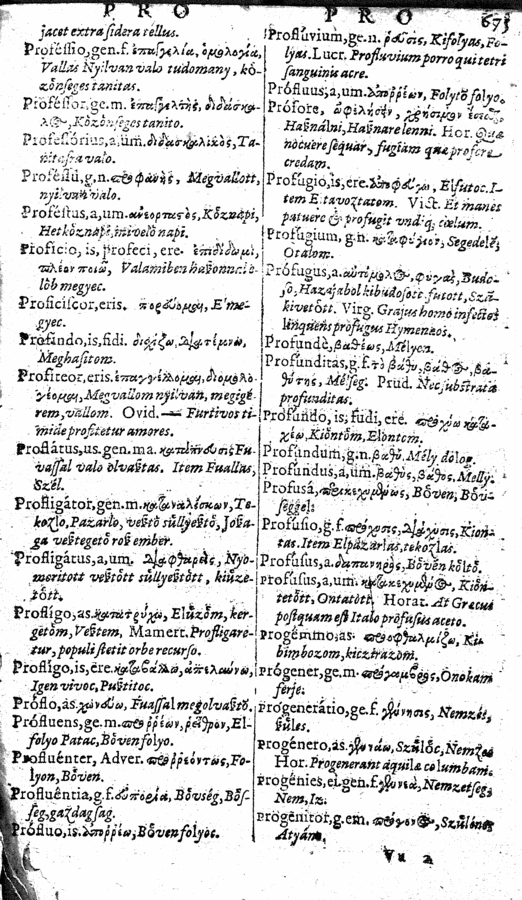 PRO PRO 675
jacet extra sidera tellus.
Professio, gen. f. ἐπαγγελία, ὁμολογία,
Vallas Nyilvan valo tudomany, kö-
zönseges tanitas.
Professor, ge. m. ἐπαγγελτὴς, διδάσκα-
λος, Közönseges tanito.
Professorius, a, um. διδασκαλικὸς, Ta-
nitasra valo.
Professu, g. n. προφανὴς, Megvallott,
nyilvan valo.
Profestus, a, um. ἀνεορταστὸς, Köznapi,
Hetköznapi, mivelö napi.
Proficio, is, profeci, ere. ἐπιδίδωμι,
πλέον ποιῶ, Valamiben
löb megyec.
Proficiscor, eris. πορεύομαι, Elme-
gyec.
Profindo, is, fidi. διχίζω, διατέμνω,
Meghasitom.
Profiteor, eris. ἐπαγγέλλομαι, διομολο-
γέομαι, Megvallom nyilvan, megigé-
rem, vallom. Ovid. — Furtivos ti-
mide profitetur amores.
Proflatus, us, gen. ma. Fu-
vassal valo olvastas. Item Fuallas,
Szél.
Profligator, gen. m. καταναλίσκων, Te-
kozlo, Pazarlo, vestö süllyestö, Josa-
ga vestegetö ros ember.
Profligatus, a, um. διαφθαρεὶς, Nyo-
meritott vestött süllyestött, kiüze-
tött.
Profligo, as. κατατρύχω, Elüzöm, ker-
getöm, Vestem, Mamert. Profligare-
tur, populi stetit orbe recurso.
Profligo, is, ere.
Igen vivoc, Pustitoc.
Proflo, as. Fuassal megolvastö.
Profluens, ge. m. προῤῥέων, ῥεῖθρον, El-
folyo Patac, Böven folyo.
Profluenter, Adver. προῤῥεόντως, Fo-
lyon, Böven.
Profluentia, g. f. εὐπορία, Bövség, Bös-
seg, gazdagsag.
Profluo, is. ἀποῤῥέω, Böven folyoc.
Profluvium, ge. n. ῥεῦσις, Kifolyas, Fo-
lyas. Lucr. Profluvium porro qui tetri
sanguinis acre.
Profluus, a, um. ἀποῤῥέων, Folyto folyo.
Prófore, ὠφελῆσειν, χρήσιμον
Hasnálni, Hasnare lenni. Hor. Quæ
nocuere sequar, fugiam quæ profore
credam.
Profugio, is, ere. ἀποφεύγω, Elfutoc. I-
tem Eltavoztatom. Vict. Et manes
patuere & profugit undiq; cælum.
Profugium, g. n. καταφύγιον, Segedelé,
Otalom.
Profugus, a. αὐτόμολος, φυγὰς, Budo-
so, Hazajabol kibudosott, futott, Szá-
kivetött. Virg. Grajus homo infectos
linquens profugus Hymeneos.
Profundè, βαθέως, Mélyen.
Profunditas, g. f. τὸ βάθυ, βάθος, βα-
θύτης, Mélseg. Prud. Nec substrata
profunditas.
Profundo, is, fudi, ere. προχέω κατα-
χέω, Kiöntöm, Elöntem.
Profundum, g. n. βαθύ. Mély dolog.
Profundus, a, um. βαθὺς, βαθὸς, Melly.
Profusà, Böven, Böv-
séggel:
Profusio, g. f. πρόχυσις, διάχυσις, Kion-
tas. Item Elpazarlas, tekozlas.
Profusus, a. δαπανηρὸς, Böven költö.
Profusus, a, um. κατακεχυμένος, Kiön-
tetött, Ontatott. Horat. At Græcus
postquam est Italo profusus aceto.
Progemmo, as. προοφθαλμίζω, Ki
bimbozom, kicziràzom.
Prógener, ge. m. πρόγαμβρος, Onokam
ferje.
Progeneratio, ge. f. γέννησις, Nemzés,
sülés.
Progénero, as. γεννάω, Szülöc, Nemzec
Hor. Progenerant aquilæ columbam.
Progénies, ei, gen. f. γενεὰ, Nemzetseg,
Nem, Iz.
Progénitor, g. em. πρόγονος, Szülönec
Atyàm,
Vu 2